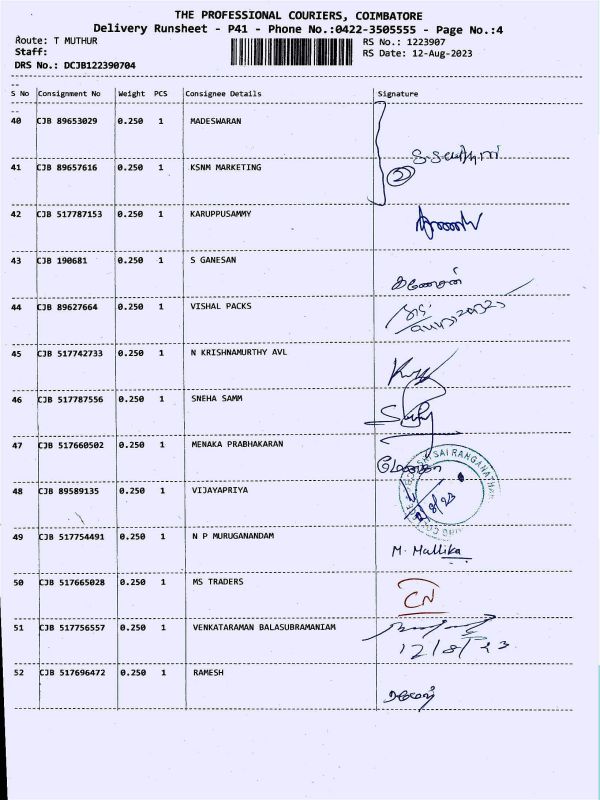 THE PROFESSIONAL COURIERS, COIMBATORE
Delivery Runsheet - P41 - Phone No.:0422-3505555 - Page No.:4
Route: T MUTHUR
RS No.: 1223907
Staff:
RS Date: 12-Aug-2023
DRS No.: DCJB122390704
S No Consignment No Weight PCS Consignee Details Signature
40 CJB 89653029 0.250 1 MADESWARAN
2
41 CJB 89657616 0.250 1 KSNM MARKETING
42 CJB 517787153 0.250 1 KARUPPUSAMMY
43 CJB 190681 0.250 1 S GANESAN கணேசன்
44 CJB 89627664 0.250 1 VISHAL PACKS
45 CJB 517742733 0.250 1 N KRISHNAMURTHY AVL
46 CJB 517787556 0.250 1 SNEHA SAMM
47 CJB 517660502 0.250 1 MENAKA PRABHAKARAN மேனகா
SAI RANGANATHAN
48 CJB 89589135 0.250 1 VIJAYAPRIYA
49 CJB 517754491 0.250 1 N P MURUGANANDAM M. Mallika
50 CJB 517665028 0.250 1 MS TRADERS CN
51 CJB 517756557 0.250 1 VENKATARAMAN BALASUBRAMANIAM
12/8/23
52 CJB 517696472 0.250 1 RAMESH ரமேஷ்